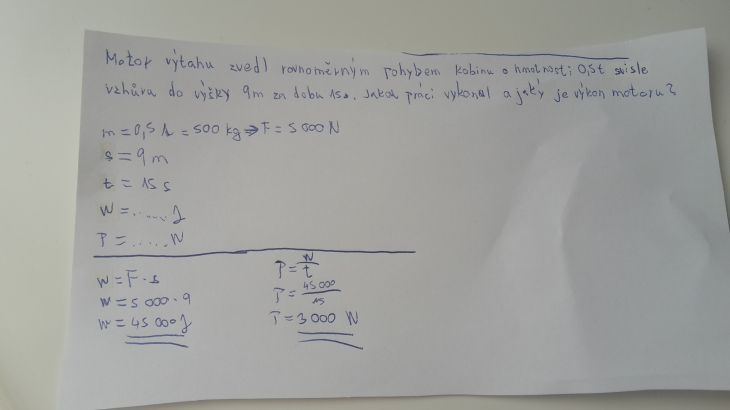 Motor výtahu zvedl rovnoměrným pohybem kabinu o hmotnosti 0,5t svisle
vzhůru do výšky 9m za dobu 15s. Jakou práci vykonal a jaký je výkon motoru?
m = 0,5 t = 500 kg => F = 5 000 N
s = 9 m
t = 15 s
W = ...... J
P = ...... W
W = F · s
W = 5 000 · 9
W = 45 000 J
P = W/t
P = 45 000/15
P = 3 000 W